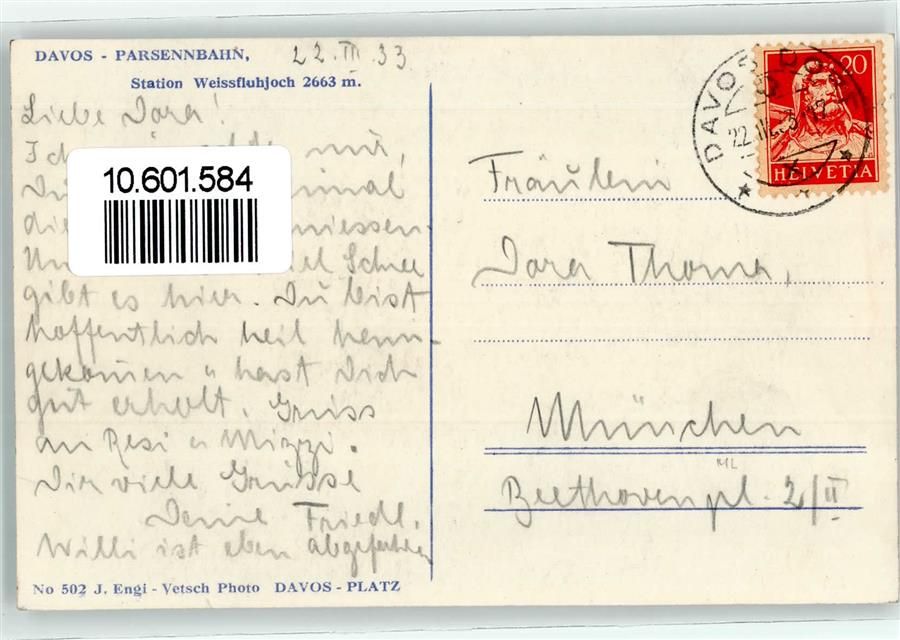 DAVOS - PARSENNBAHN,
22.III.33
Station Weissfluhjoch 2663 m.
Liebe Dora!
Ich mir,
10.601.584
Schnee
gibt es hier. Du bist
hoffentlich heil heim-
gekommen u hast Dich
gut erholt. Gruss
an Resi u Mizzi.
Dir viele Grüsse
Deine Friedl.
Willi ist eben abgefahren
No 502 J. Engi - Vetsch Photo DAVOS - PLATZ
DAVOS DORF
22.III.33
20
HELVETIA
Fräulein
Dora Thoma,
München
ML
Beethovenpl. 2/II